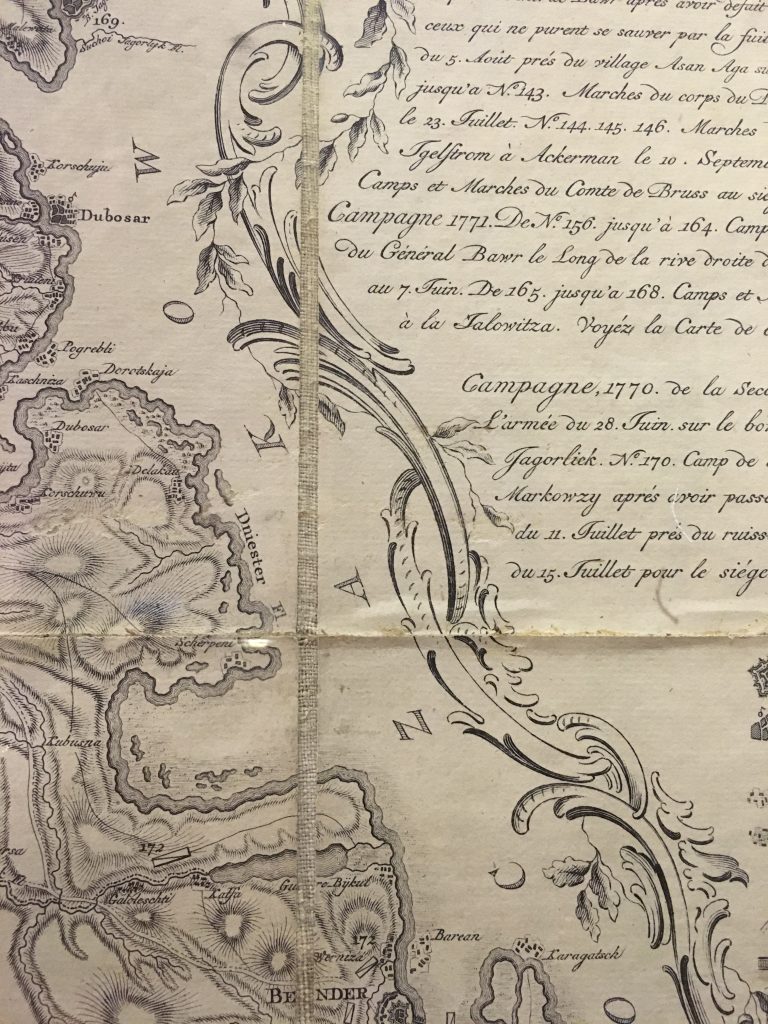 169.
Suchoi Jagorlyk R.
Korschuju
Dubosar
Pogrebli
Dorotskaja
Kaschniza
Dubosar
Delakau
Korschuvru
Dniester Fl.
Scherpeni
Kubusna
172
Galoleschti
Kalfa
Gura re Bijkul
172
Werniza
Barean
Karagatsch
BENDER
W
K
A
Z
de Bawr après avoir défait
ceux qui ne purent se sauver par la fuit
du 5. Août prés du village Asan Aga su
jusqu'a No. 143. Marches du corps du
le 23. Juillet. No. 144. 145. 146. Marches
Igelstrom à Ackerman le 10. Septem
Camps et Marches du Comte de Bruss au sié
Campagne 1771. De No. 156. jusqu'à 164. Camp
du Général Bawr le Long de la rive droite d
au 7. Juin. De 165. jusqu'a 168. Camps et
à la Jalowitza. Voyéz la Carte de
Campagne, 1770. de la Seco
L'armée du 28. Juin. sur le bo
Jagorliek. No. 170. Camp de
Markowzy aprés avoir passé
du 11. Juillet prés du ruiss
du 15. Juillet pour le siége